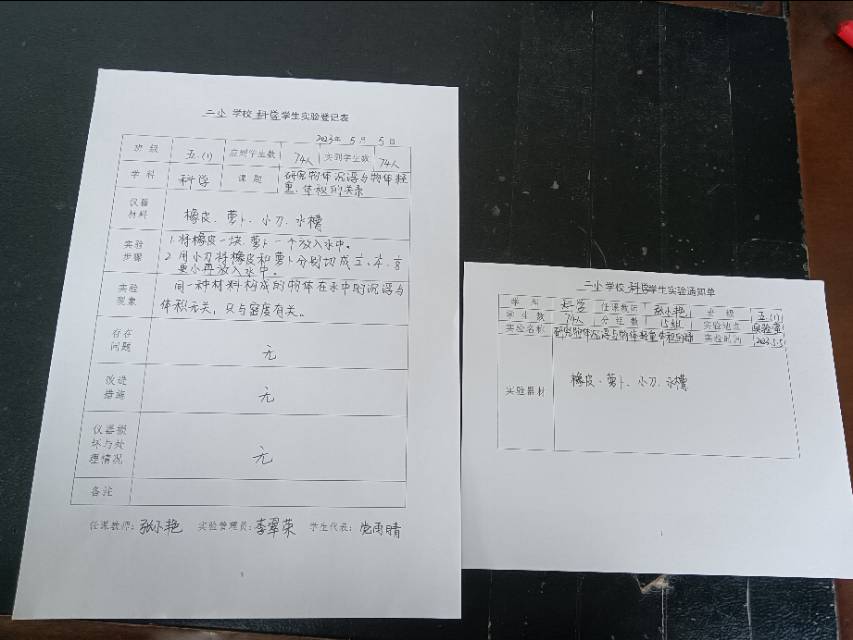 二小 学校 科学 学生实验登记表
2023年 5月 5日
班级 五.(1) 应到学生数 74人 实到学生数 74人
学科 科学 课题 研究物体沉浮与物体轻
重、体积的关系
仪器
材料 橡皮、萝卜、小刀、水槽
实验
步骤 1.将橡皮一块、萝卜一个放入水中。
2.用小刀将橡皮和萝卜分别切成
更小再放入水中。
实验
现象 同一种材料构成的物体在水中的沉浮与
体积无关,只与密度有关。
存在
问题 无
改进
措施 无
仪器损
坏与处
理情况 无
备注
任课教师:张小艳 实验管理员:李翠荣 学生代表:
二小 学校 科学 学生实验通知单
学科 科学 任课教师 张小艳 班级 五.(1)
学生数 74人 分组数 15组 实验地点 实验室
实验名称 研究物体沉浮与物体轻重体积的 实验时间 2023.5.5
实验器材 橡皮、萝卜、小刀、水槽